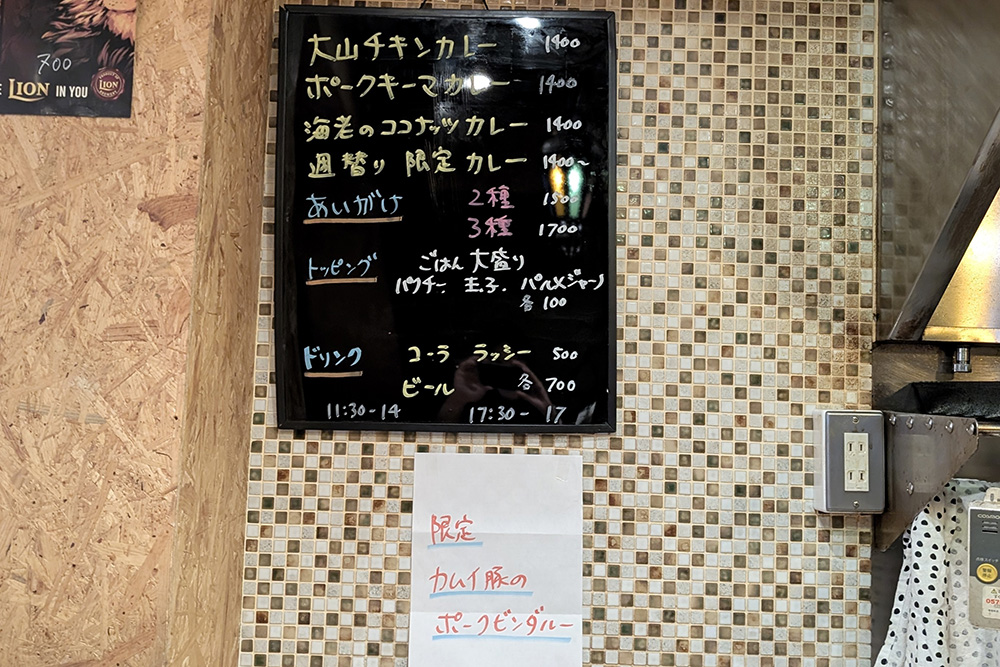 700
LION IN YOU
LION
大山チキンカレー 1400
ポークキーマカレー 1400
海老のココナッツカレー 1400
週替り 限定カレー 1400~
あいがけ 2種 1500
3種 1700
トッピング ごはん大盛り
パクチー、玉子、パルメジャーノ
各100
ドリンク コーラ ラッシー 500
ビール 各700
11:30-14 17:30-17
限定
カムイ豚の
ポークビンダルー